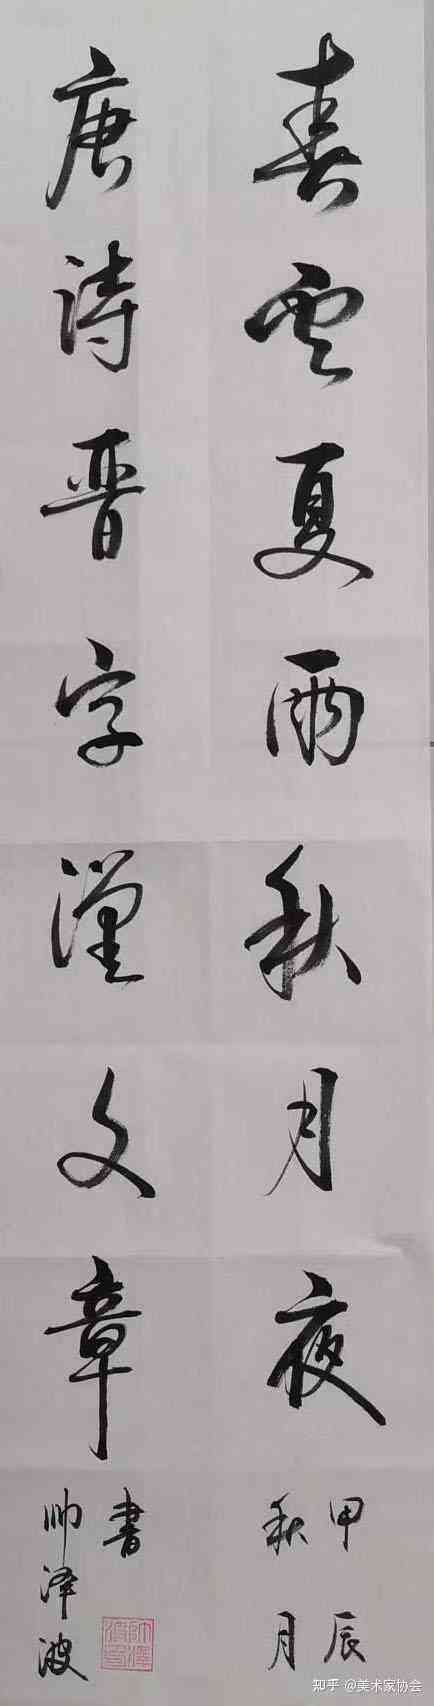 春雲夏雨秋月夜
甲辰
秋月
唐詩晉字漢文章
書
帅泽波
知乎 @美术家协会